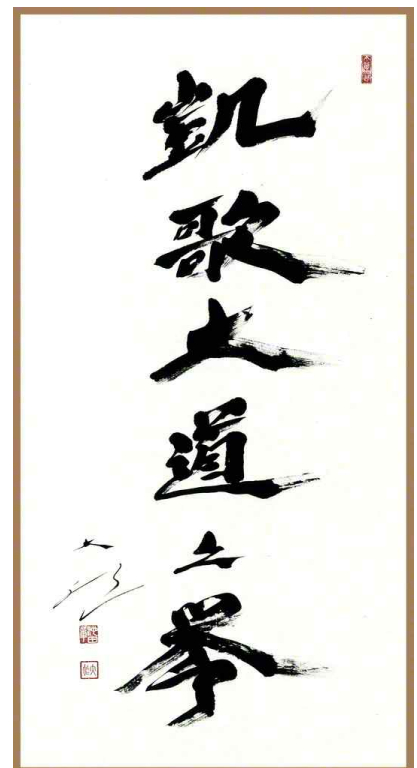 凱歌大道之挙